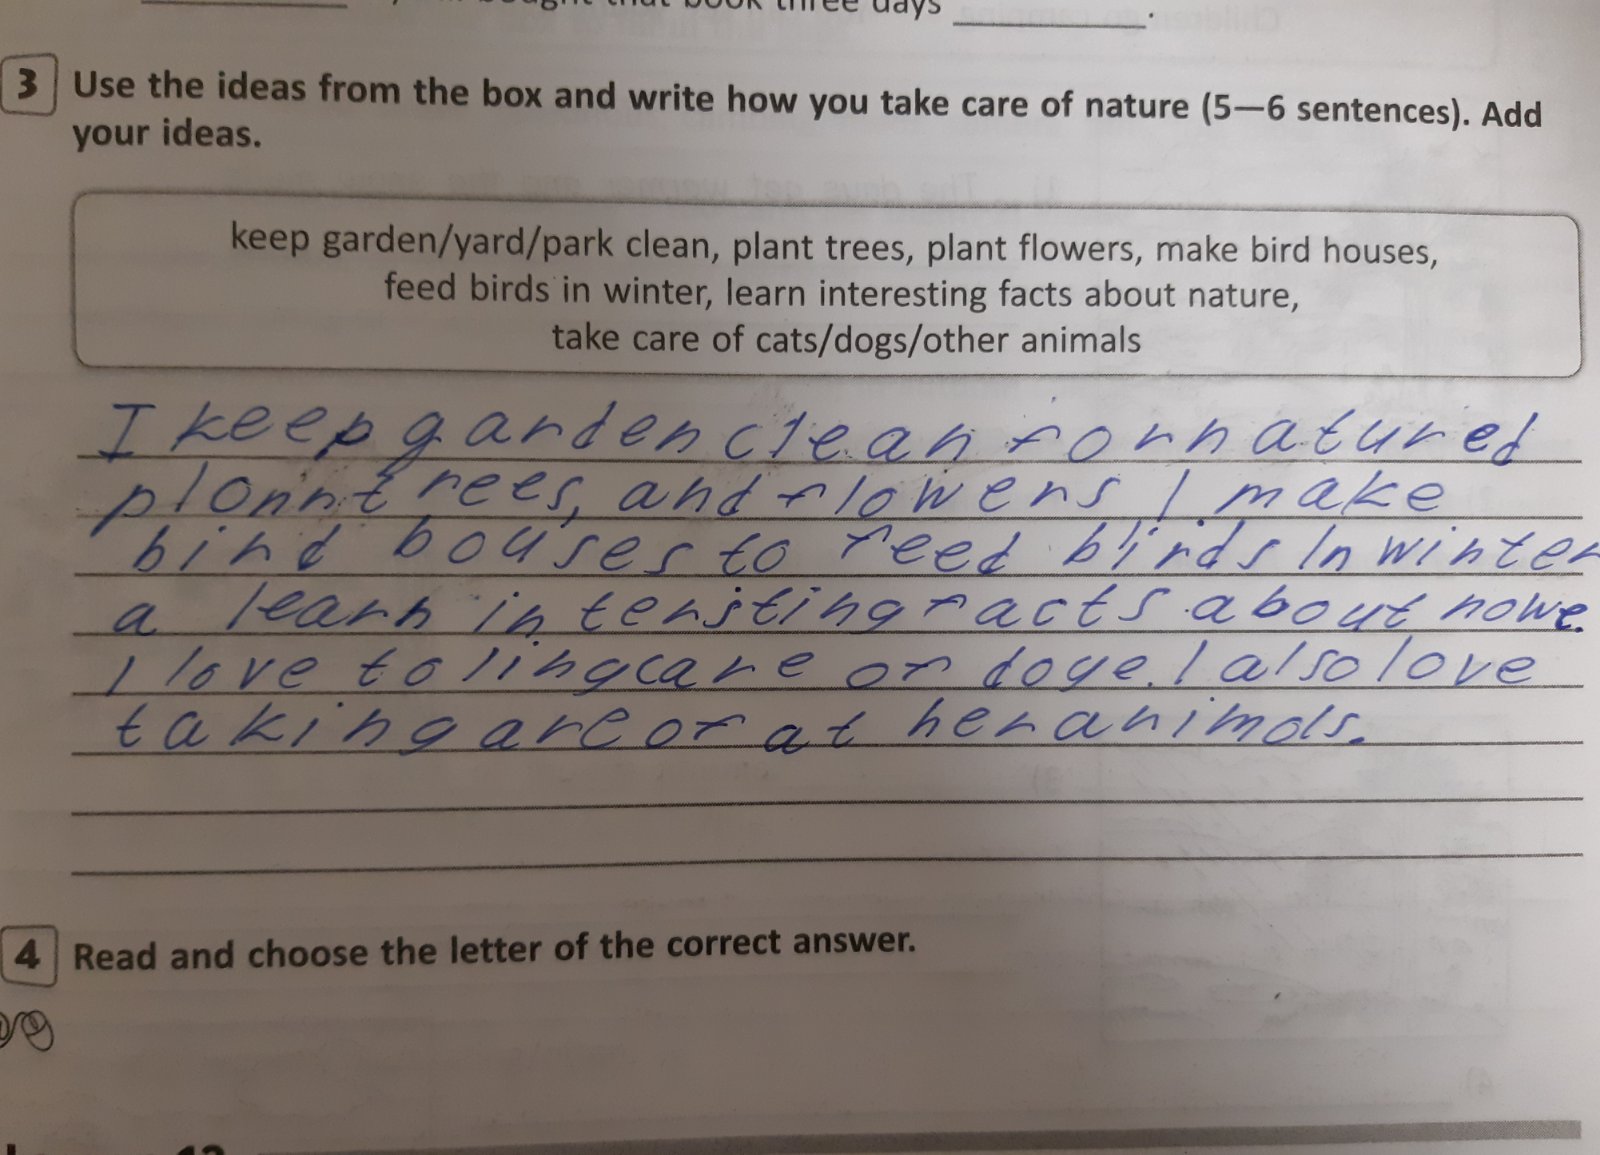 bought that book three days ________.
3 Use the ideas from the box and write how you take care of nature (5—6 sentences). Add
your ideas.
keep garden/yard/park clean, plant trees, plant flowers, make bird houses,
feed birds in winter, learn interesting facts about nature,
take care of cats/dogs/other animals
I keep garden clean for natured
plonnt rees, and flowers I make
bird bouses to feed birds In winter
a learn intersting facts about nowe.
I love to lingcare of doge. I also love
taking are of at her animols.
4 Read and choose the letter of the correct answer.